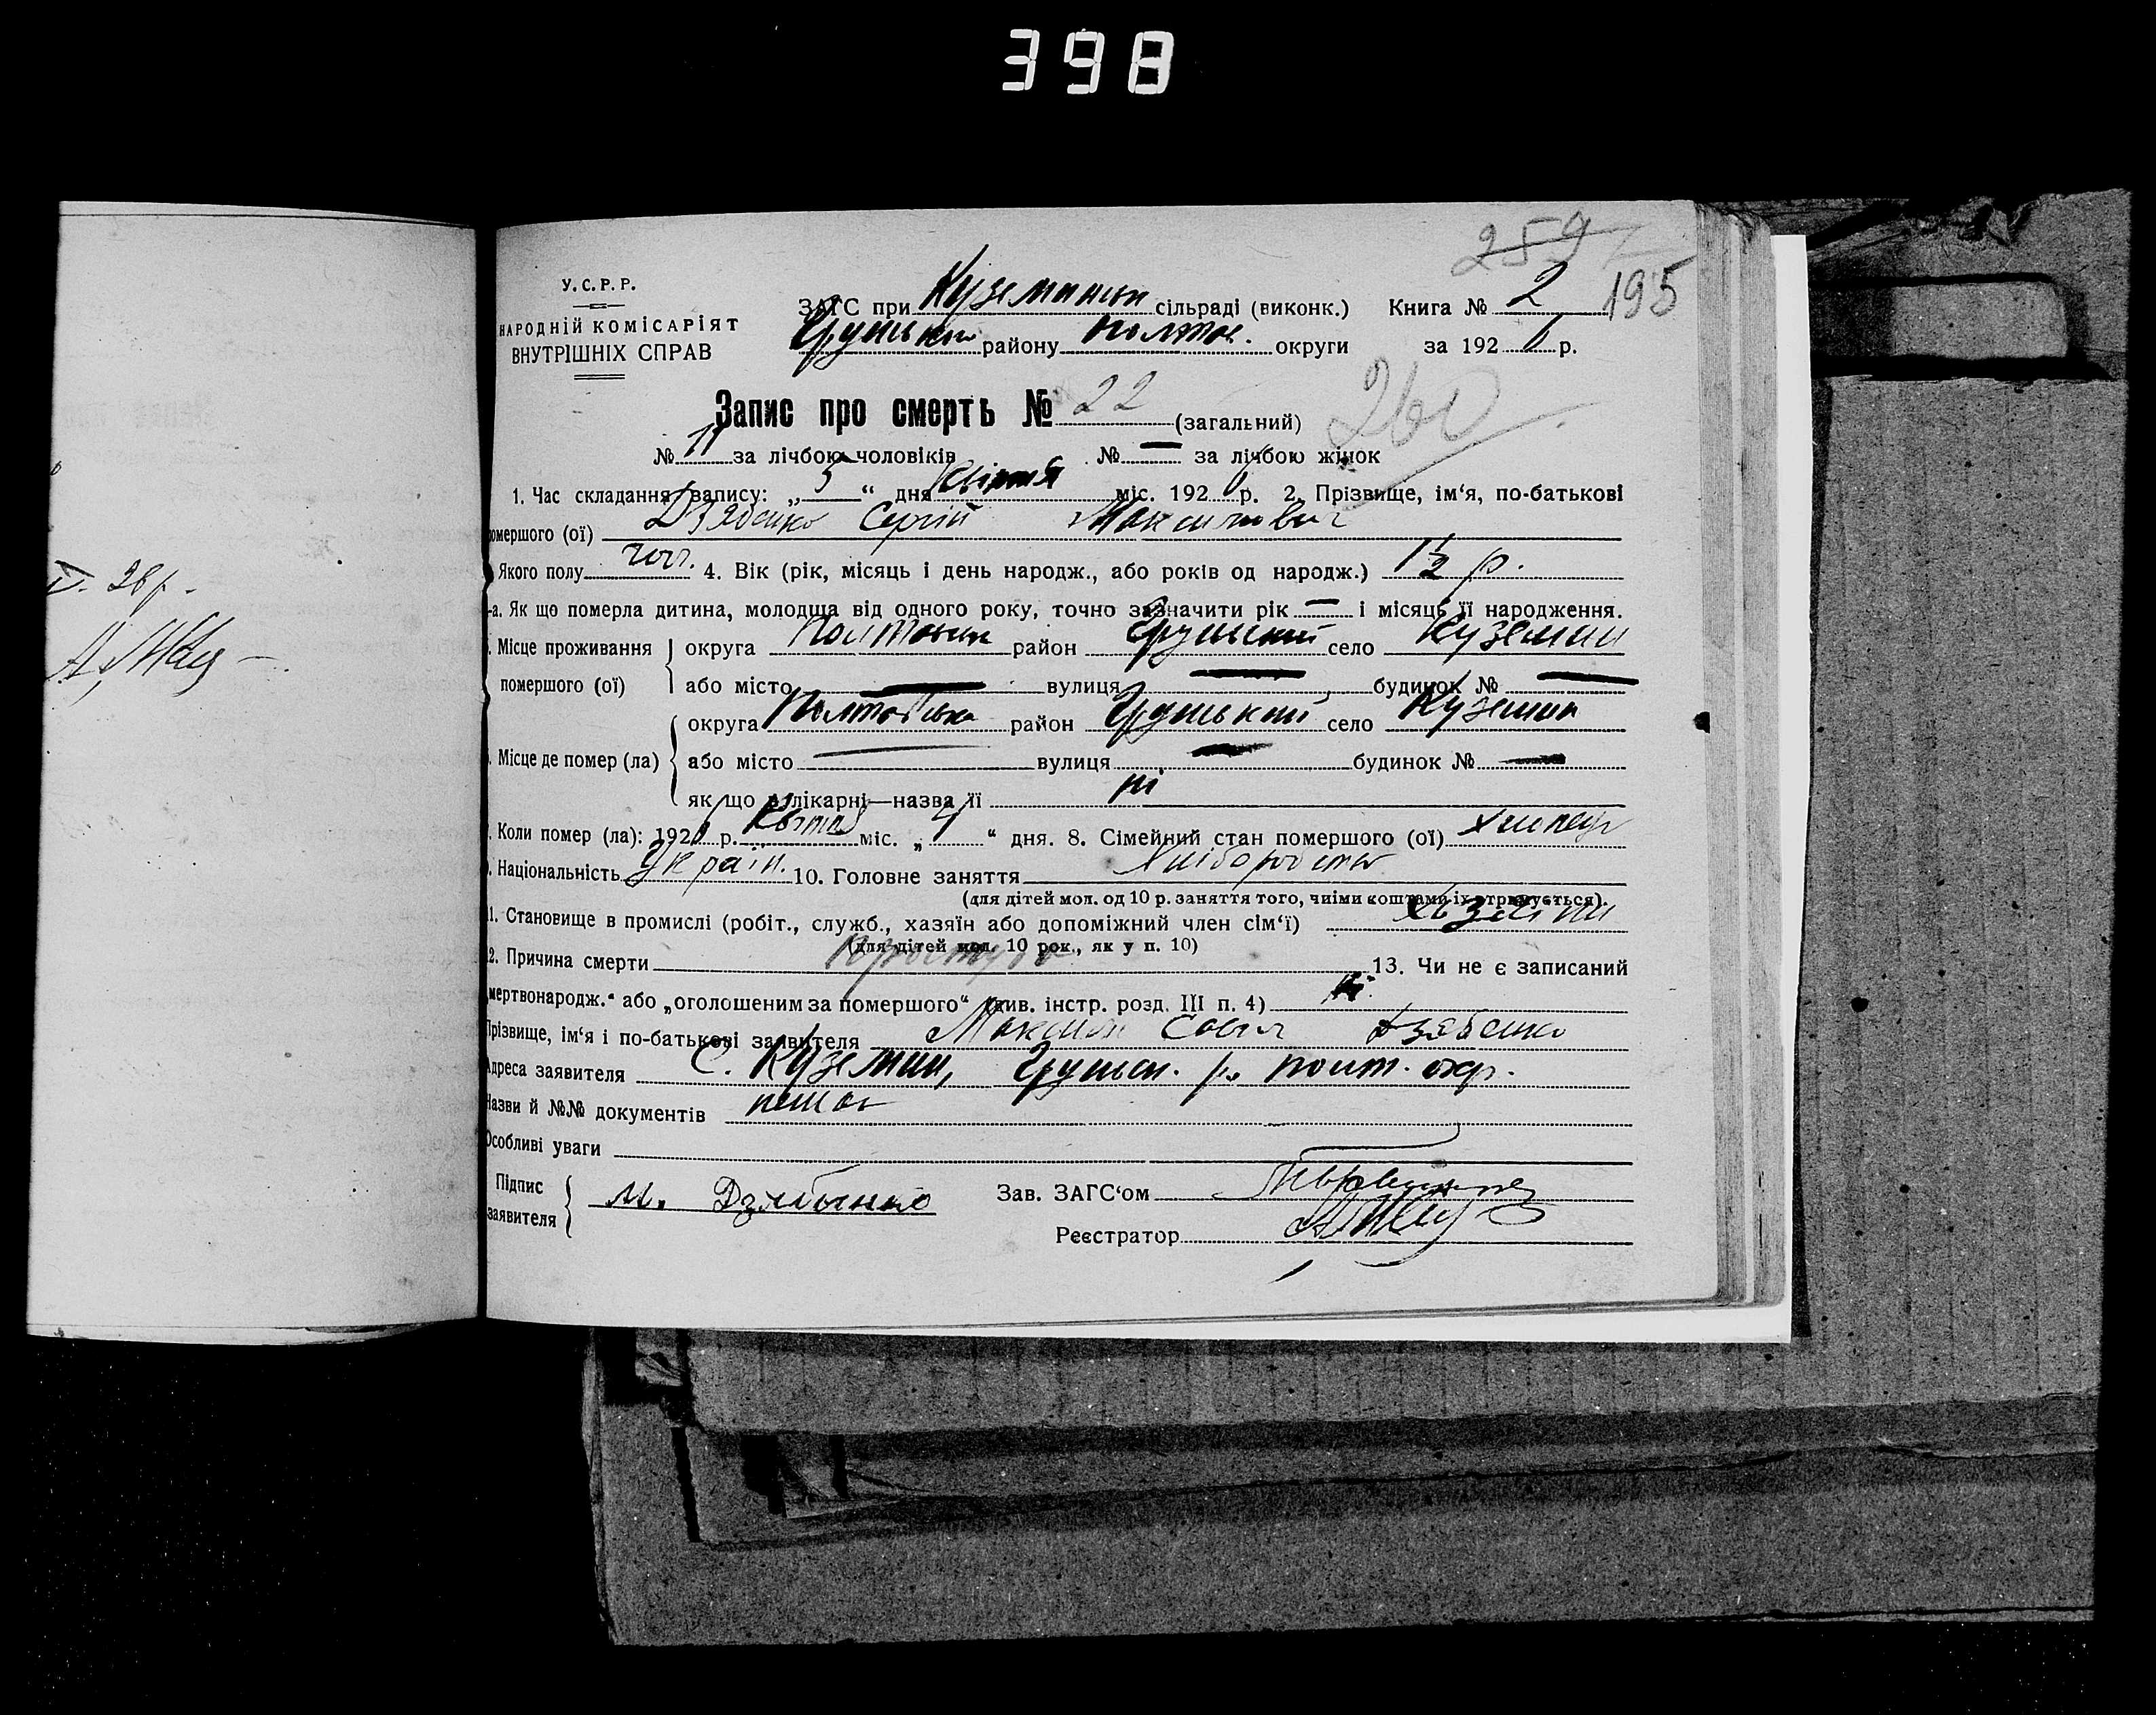 398
259
195
У.С.Р.Р.
НАРОДНІЙ КОМІСАРІЯТ
ВНУТРІШНІХ СПРАВ
ЗАГС при Куземинськ сільраді (виконк.) Книга № 2
Грунський району Полтов. округи за 1926 р.
260
Запис про смерть № 22 (загальний)
№ 11 за лічбою чоловіків № — за лічбою жінок
1. Час складання запису: „ 5 “ дня Квітня міс. 1926 р. 2. Прізвище, ім‘я, по-батькові
омершого (ої) Дзябенко Сергій Максимович
Якого полу чол. 4. Вік (рік, місяць і день народж., або років од народж.) 1½ р.
-а. Як що померла дитина, молодща від одного року, точно зазначити рік — і місяць її народження.
Місце проживання помершого (ої)
округа Полтавськ район Грунский село Куземин
або місто — вулиця — будинок № —
Місце де помер (ла)
округа Полтовська район Грунький село Куземин
або місто — вулиця — будинок № —
як що в лікарні—назва її ні
Коли помер (ла): 1926 р. Квітня міс. „ 4 “ дня. 8. Сімейний стан помершого (ої) хлипець
Національність Україн. 10. Головне заняття Хліборобство
(для дітей мол. од 10 р. заняття того, чиїми коштами їх отримується).
11. Становище в промислі (робіт., служб., хазяїн або допоміжний член сім‘ї) хазяїни
(для дітей мол. 10 рок., як у п. 10)
2. Причина смерти Простуда 13. Чи не є записаний
„мертвонародж.“ або „оголошеним за помершого“ (див. інстр. розд. III п. 4) ні
Прізвище, ім‘я і по-батькові заявителя Максим Савич Дзябенко
Адреса заявителя С. Куземин, Грунськ. р. полт. окр.
Назви й №№ документів немає
Особливі уваги
Підпис заявителя М. Дзябынко Зав. ЗАГС‘ом
Реєстратор
26 р.